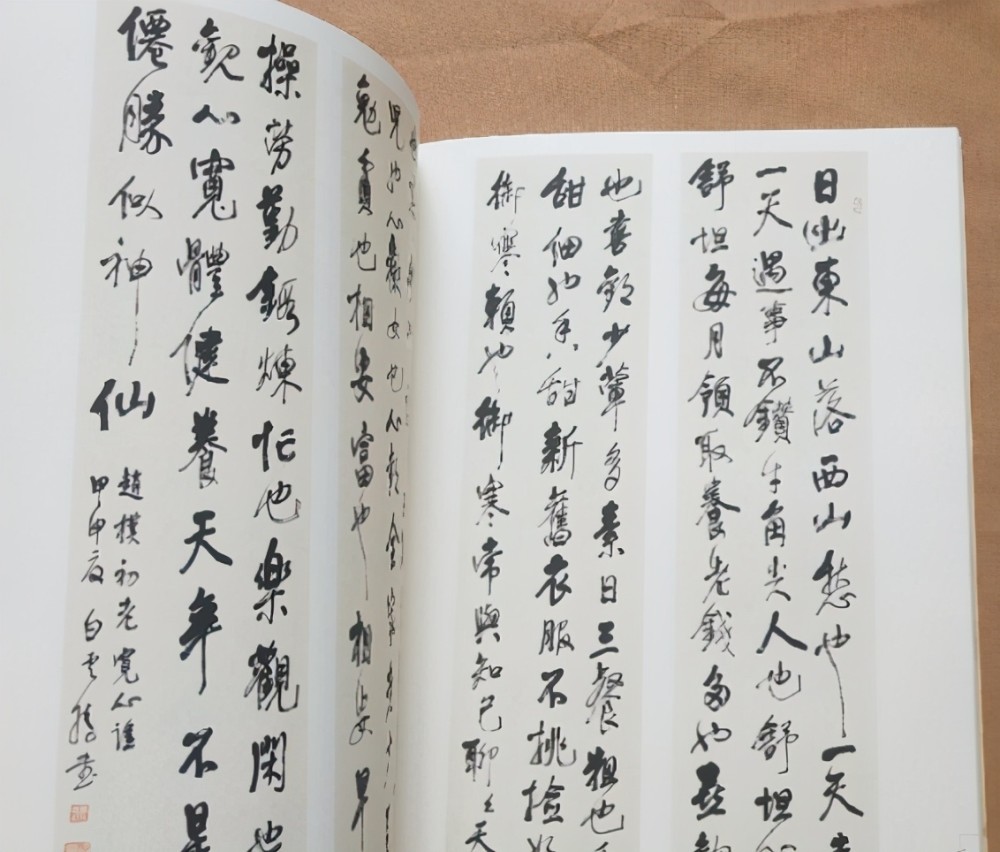 日出東山落西山愁也一天
一天遇事不鑽牛角尖人也舒坦
舒坦每月領取養老錢多也喜歡
也喜歡少葷多素日三餐粗也
甜細也香甜新舊衣服不挑撿好
御寒賴也御寒常與知己聊々天
兒也心歡女也心歡全家老少
勉貧也相安富也相安早
操勞勤鍛煉忙也樂觀閑也
觀心寬體健養天年不是
僊勝似神仙
趙樸初老寬心謠
甲申夏白雲